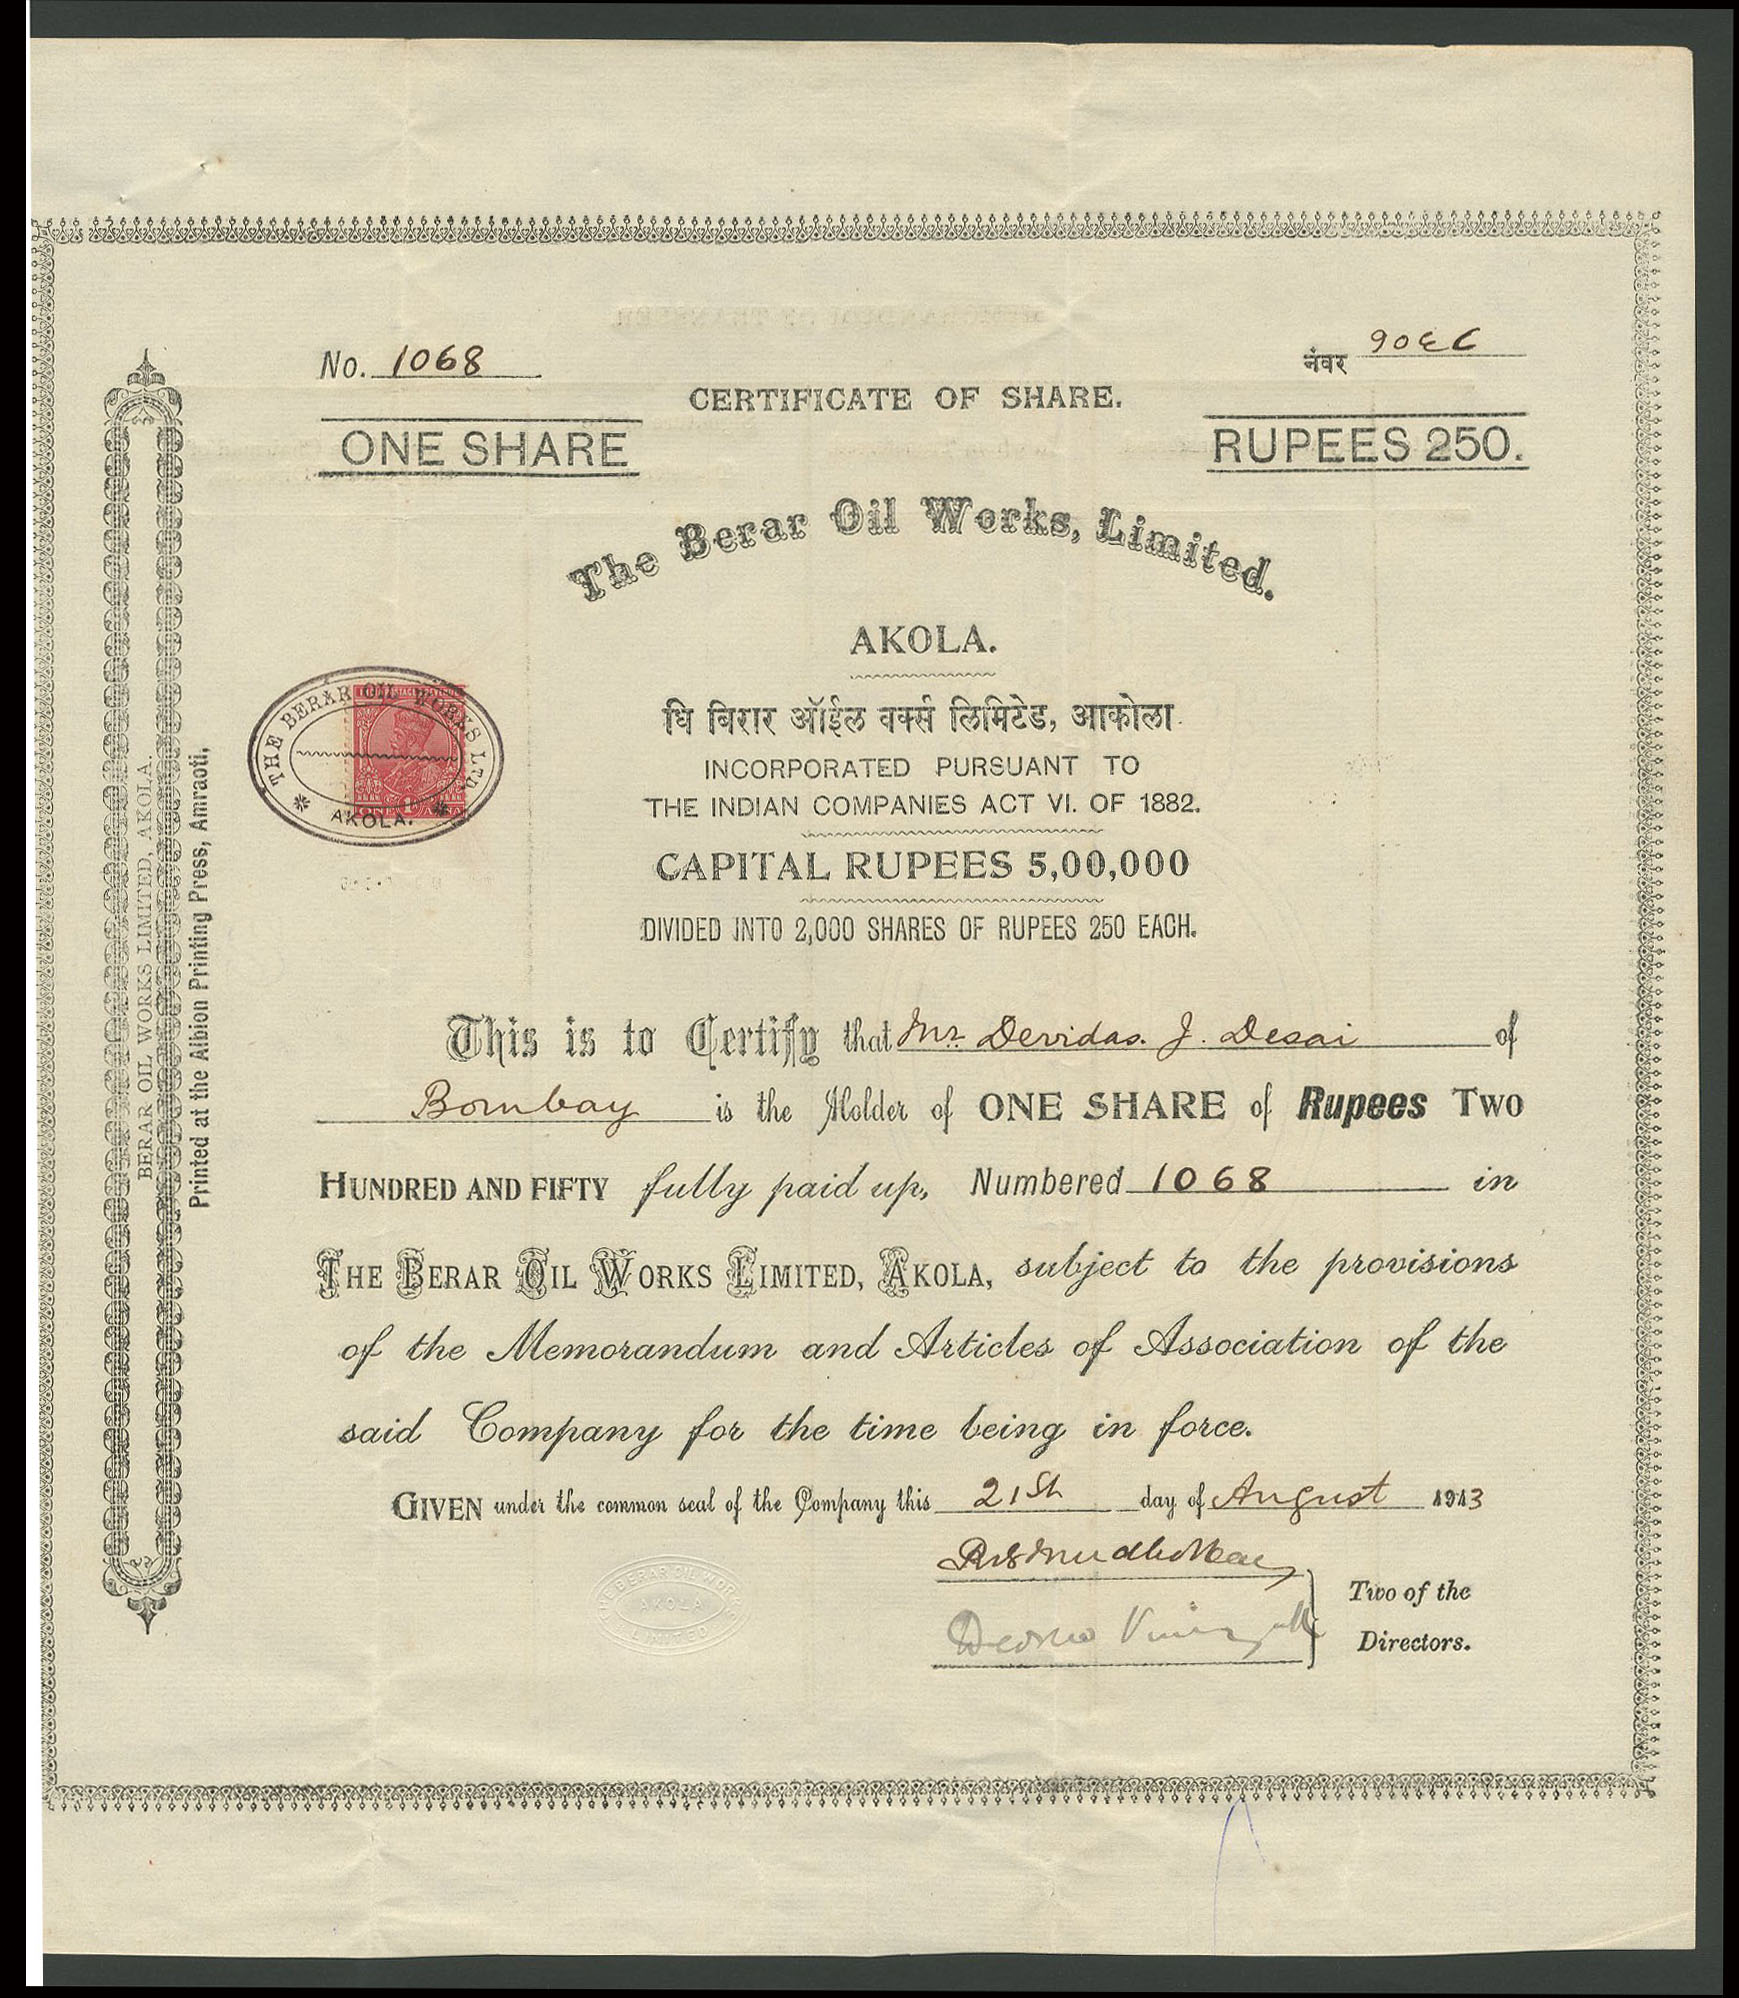 No. 1068
नंवर १०६८
CERTIFICATE OF SHARE.
ONE SHARE
RUPEES 250.
The Berar Oil Works, Limited.
AKOLA.
धि बिरार ऑईल वर्क्स लिमिटेड, आकोला.
INCORPORATED PURSUANT TO
THE INDIAN COMPANIES ACT VI. OF 1882.
CAPITAL RUPEES 5,00,000
DIVIDED INTO 2,000 SHARES OF RUPEES 250 EACH.
THE BERAR OIL WORKS LTD.
AKOLA.
BERAR OIL WORKS LIMITED, AKOLA.
Printed at the Albion Printing Press, Amraoti,
This is to Certify that Mr. Devidas. J. Desai of
Bombay is the Holder of ONE SHARE of Rupees TWO
HUNDRED AND FIFTY fully paid up, Numbered 1068 in
THE BERAR OIL WORKS LIMITED, AKOLA, subject to the provisions
of the Memorandum and Articles of Association of the
said Company for the time being in force.
GIVEN under the common seal of the Company this 21st day of August 1913
Two of the
Directors.
THE BERAR OIL WORKS
AKOLA
LIMITED